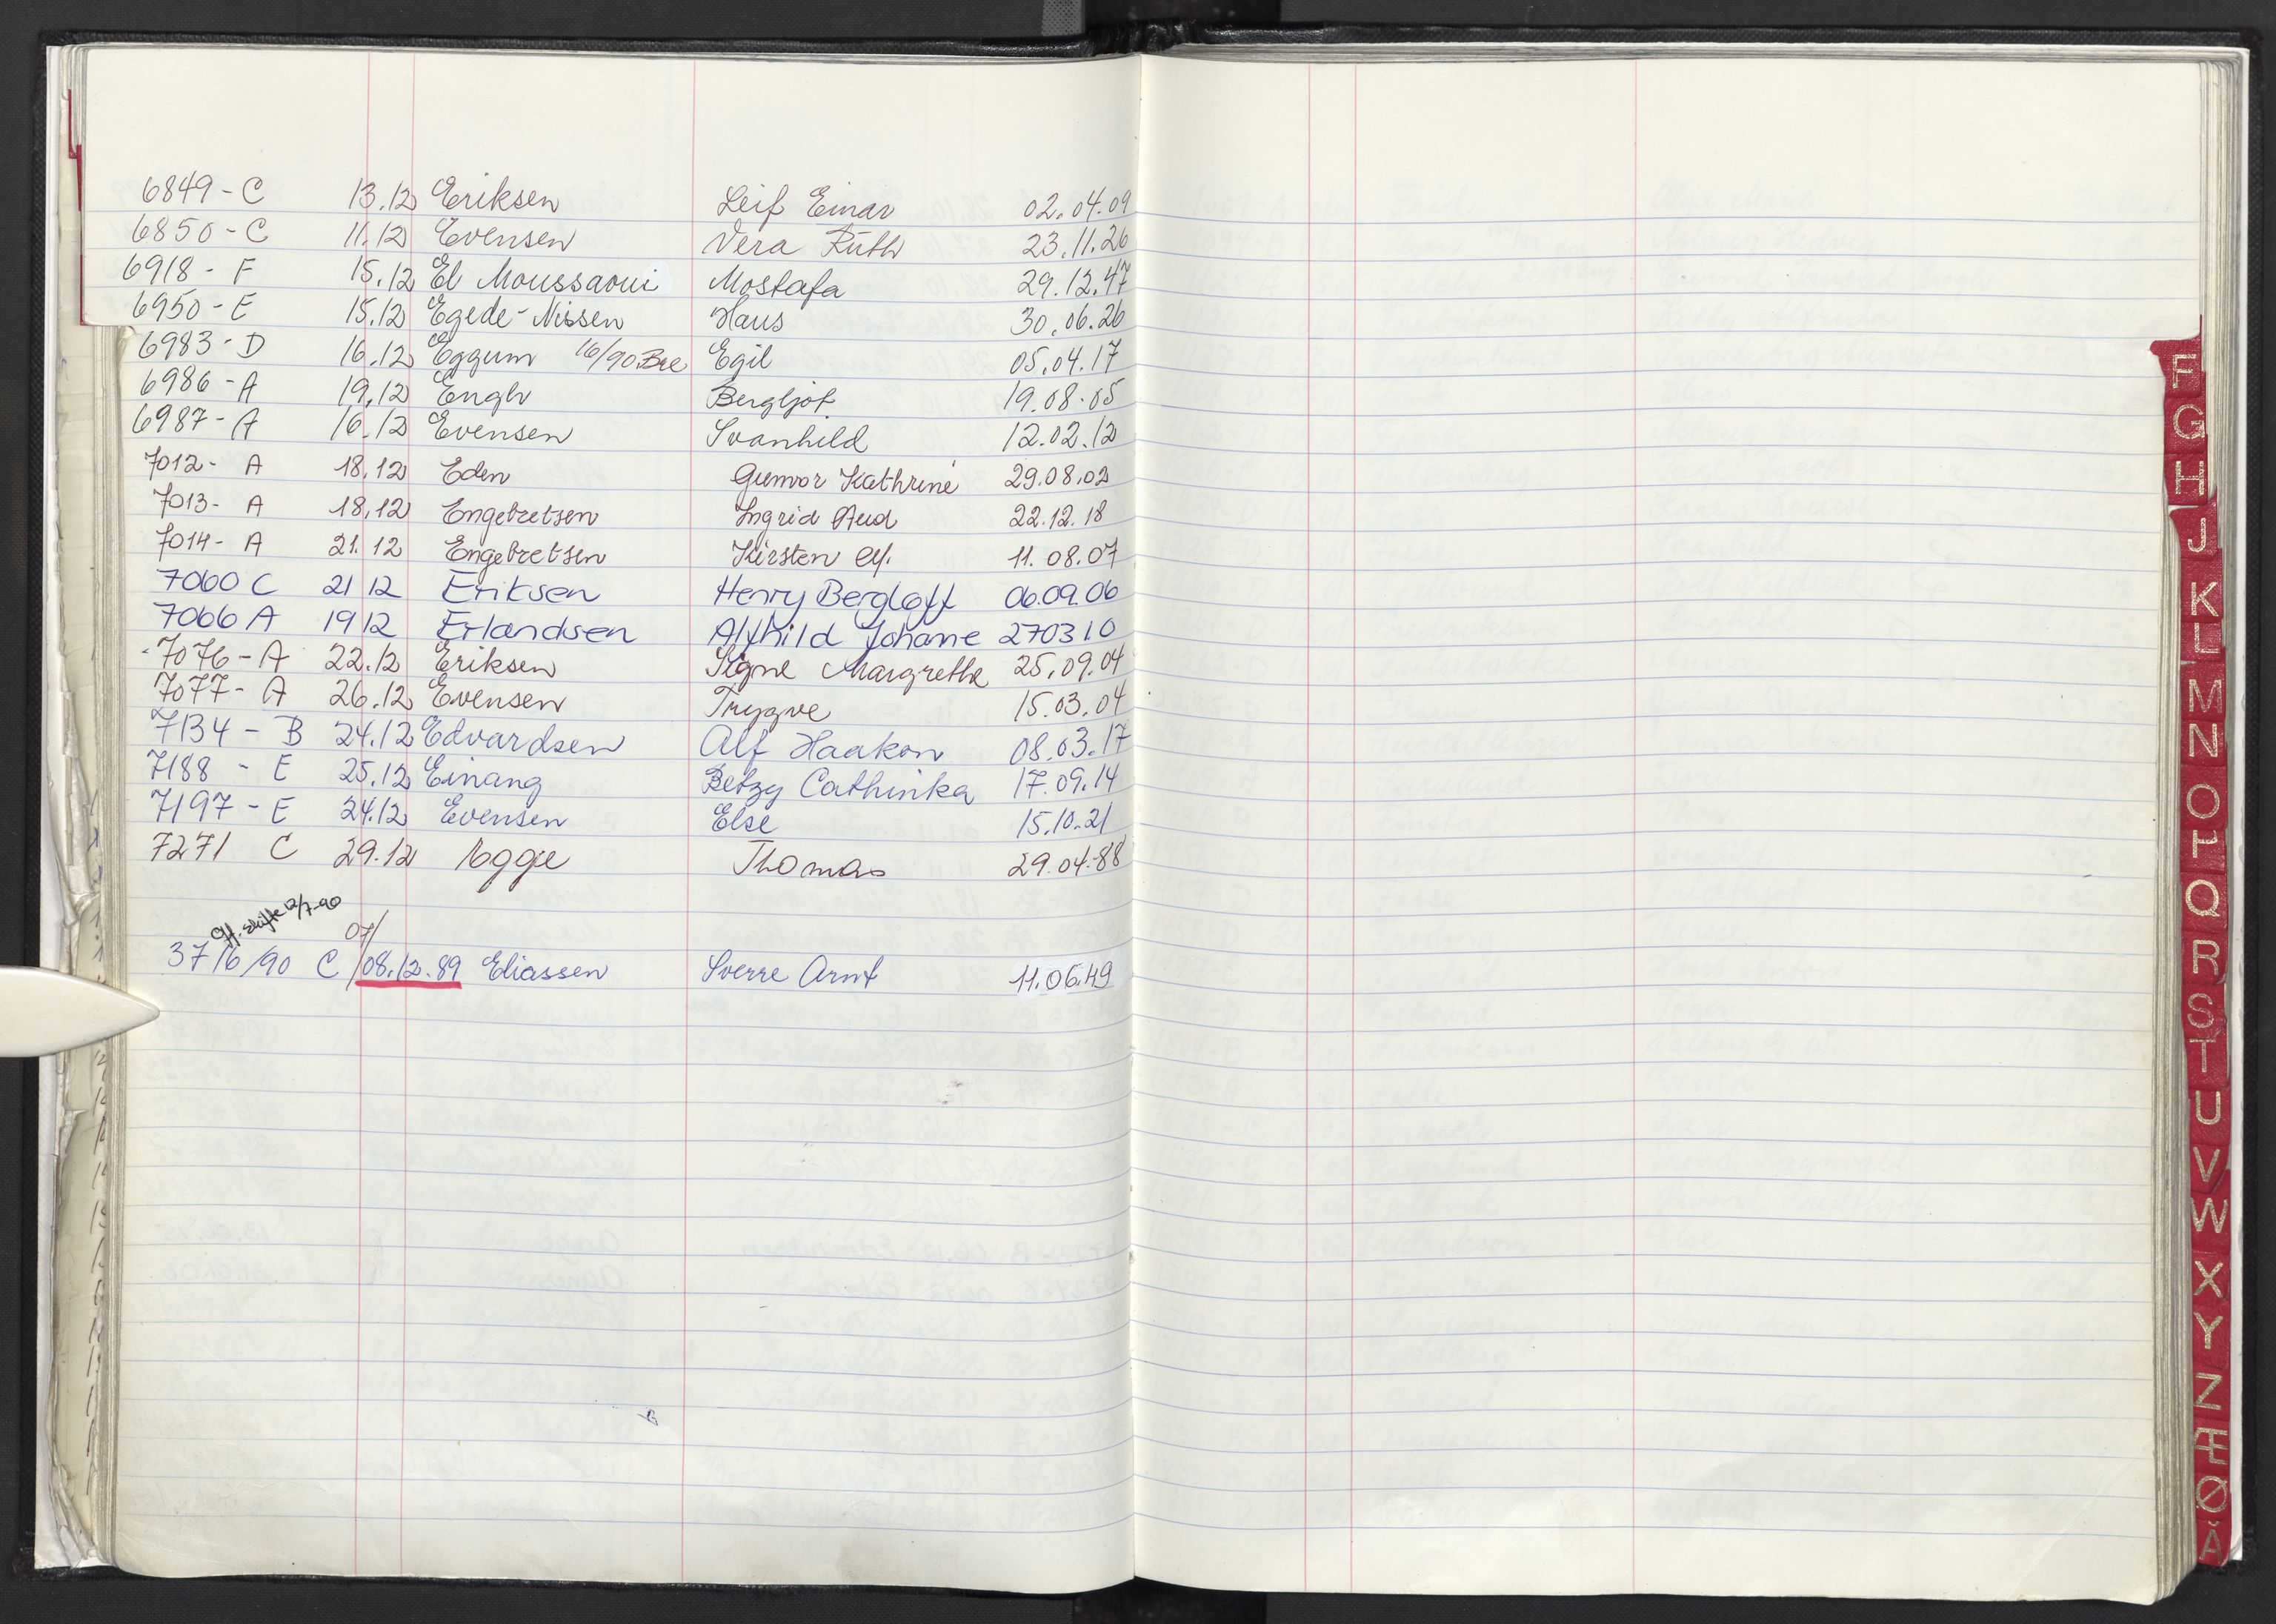 6849 - C 13.12 Eriksen Leif Einar 02.04.09
6850 - C 11.12 Evensen Vera Ruth 23.11.26
6918 - F 15.12 El Moussaoui Mostafa 29.12.47
6950 - E 15.12 Egede-Nissen Hans 30.06.26
6983 - D 16.12 Eggum 16/90 Bre Egil 05.04.17
6986 - A 19.12 Engh Bergljot 19.08.05
6987 - A 16.12 Evensen Svanhild 12.02.12
7012 - A 18.12 Eden Gunvor Kathrine 29.08.02
7013 - A 18.12 Engebretsen Ingrid Aud 22.12.18
7014 - A 21.12 Engebretsen Kirsten M. 11.08.07
7060 C 21 12 Eriksen Henry Bergloff 06.09.06
7066 A 19 12 Erlandsen Alfhild Johanne 270310
7076 - A 22.12 Eriksen Signe Margrethe 25.09.04
7077 - A 26.12 Evensen Trygve 15.03.04
7134 - B 24.12 Edvardsen Alf Haakon 08.03.17
7188 - E 25.12 Einang Betzy Cathinka 17.09.14
7197 - E 24.12 Evensen Else 15.10.21
7271 C 29.12 Thomas 29.04.88
Off. skifte 12/7-90
07/
3716/90 C 08.12.89 Eliassen Sverre Arnt 11.06.49
F
G
H
J
K
L
M
N
O
P
Q
R
S
T
U
V
W
X
Y
Z
Æ
Ø
Å